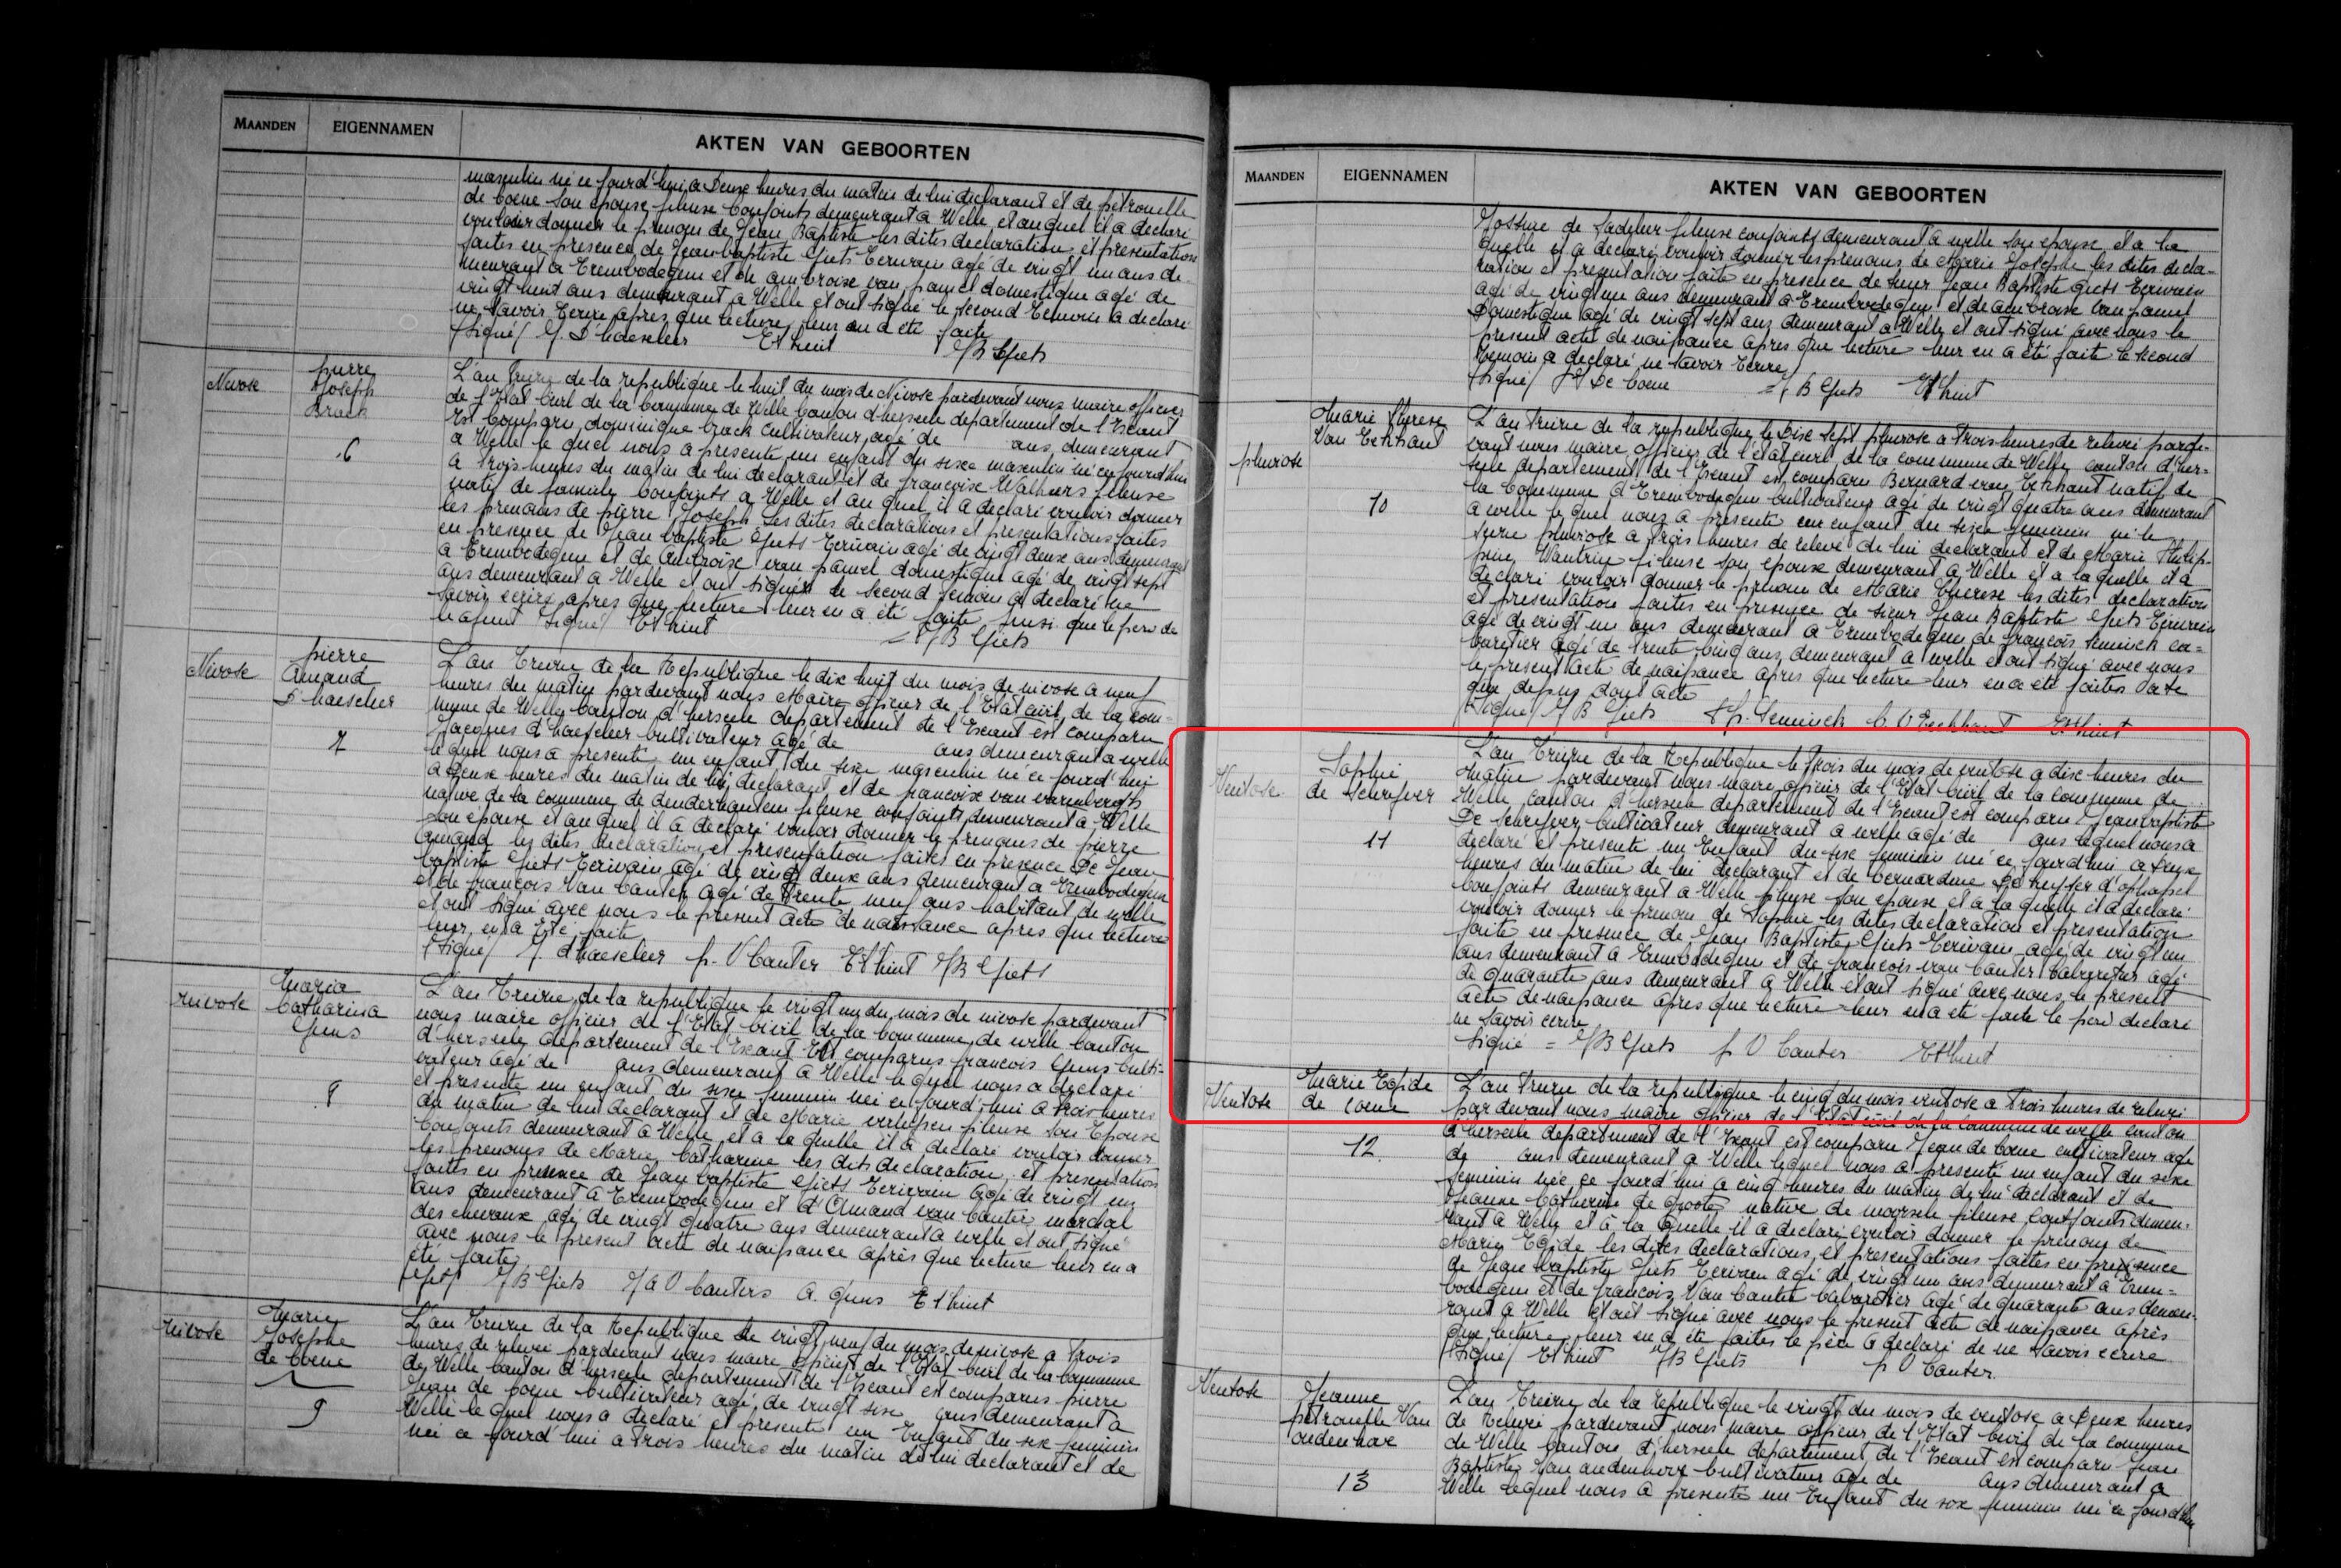 MAANDEN EIGENNAMEN AKTEN VAN GEBOORTEN
masculin né ce jourd'hui a Deux heures du matin de lui declarant et de petronelle
de Coene son epouse fileuse Conjoints demeurant a Welle et auquel il a declaré
vouloir donner le prenom de Jean Baptiste les dites declaration et presentation
faites en presence de Jean baptiste Giets Ecrivain agé de vingt un ans de
meurant a Erembodegem et de ambroise van pamel domestique agé de
vingt huit ans demeurant a Welle et ont signé le second temoin a declaré
ne savoir Ecrire apres que lecture leur en a été faite
(signé) J. D'haeseleer Et hint JB Giets
Nivose
pierre
Joseph
Brack
6
L'an treize de la republique le huit du mois de Nivose pardevant nous maire officier
de l'Etat Civil de la Commune de Welle Canton d'herseele departement de l'Escaut
Est Comparu dominique brack Cultivateur agé de ans demeurant
a Welle le quel nous a presenté un enfant du sexe masculin né ce jourd'hui
a trois heures du matin de lui declarant et de francoise Walhiers fileuse
natif de Conjoints a Welle et au quel il a declaré vouloir donner
les prenoms de pierre Joseph Les dites declarations et presentations faites
en presence de Jean baptiste Giets Ecrivain agé de vingt deux ans demeurant
a Erembodegem et de Ambroise van pamel domestique agé de vingt sept
ans demeurant a Welle et ont signé le second temoin a declaré ne
savoir ecrire apres que lecture leur en a été faite ainsi que le peré
signé Et hint = JB Giets
Nivose
pierre
Amand
D'haeseleer
7
L'an treize de la Republique le dix huit du mois de nivose a neuf
heures du matin pardevant nous Maire officier de l'Etat civil de la com=
mune de Welle Canton d'herseele departement de l'Escaut est comparu
Jacques d'haeseleer Cultivateur agé de ans demeurant a welle
le quel nous a presenté un enfant du sexe masculin né ce jourd'hui
a Deux heures du matin de lui declarant et de francoise van varenbergh
native de la commune de denderhautem fileuse conjoints demeurant a Welle
son épouse et au quel il a declaré vouloir donner le prenoms de pierre
Amand les dites declaration et presentation faites en presence De Jean
baptiste Giets Ecrivain agé de vingt deux ans demeurant a Erembodegem
et de françois Van Canter agé de trente neuf ans habitant de welle
et ont signé avec nous le present acte de naissance apres que lecture
leur en a Eté faite
(signé) J. dhaeseleer p. V Canter Et hint JB Giets
nivose
Maria
Catharina
Gens
8
L'an treize de la republique le vingt un du mois de nivose pardevant
nous maire officier de l'Etat Civil de la Commune de welle Canton
d'herseele departement de l'Escaut Est comparus francois Gens Culti=
vateur agé de ans demeurant a Welle le quel nous a declaré
et presenté un enfant du sexe feminin né ce jourd'hui a trois heures
du matin de lui declarant et de Marie verlypen fileuse son Epouse
Conjoints demeurant a Welle et a la quelle il a declaré vouloir donner
les prenoms de Marie Catharine les dits declaration et presentation
faites en presence de Jean baptiste Giets Ecrivain agé de vingt un
ans demeurant a Erembodegem et d'Amand van Canter marchal
des chevaux agé de vingt quatre ans demeurant a welle et ont signé
avec nous le present acte de naissance après que lecture leur en a
été faite
JB Giets J A V Canters A. Gens Et hint
nivose
Marie
Josephe
de Coene
9
L'an treize de la Republique le vingt neuf du mois de nivose a trois
heures de relevée pardevant nous maire officier de l'Etat Civil de la Commune
de Welle Canton d'herseele departement de l'Escaut est comparus pierre
Jean de Coene Cultivateur agé de vingt six ans demeurant a
Welle le quel nous a declaré et presenté un Enfant du sexe feminin
né ce jourd'hui a trois heures du matin de lui declarant et de
MAANDEN EIGENNAMEN AKTEN VAN GEBOORTEN
Jossine de Sadeleer fileuse conjoints demeurant a welle son epouse et a la
quelle il a declaré vouloir donner les prenoms de Marie Josephe les dites decla=
ration et presentation faite en presence de sieur Jean Baptiste Giets Ecrivain
agé de vingt un ans demeurant a Erembodegem et de ambroise van pamel
Domestique agé de vingt sept ans demeurant a Welle et ont signé avec nous le
present acte de naissance apres que lecture leur en a été faite le second
temoin a declaré ne savoir Ecrire
(signé) PJ De Coene = J B Giets Et hint
pluviose
Marie therese
Van Eeckhaut
10
L'an treize de la republique le Dix sept pluviose a trois heures de relevée parde=
vant nous maire officier de l'état civil de la commune de Welle canton d'her=
seele departement de l'Escaut est comparu Bernard van Eeckhaut natif de
la Commune d'Erembodegem Cultivateur agé de vingt quatre ans demeurant
a welle le quel nous a presenté un enfant du sexe feminin né le
seize pluviose a trois heures de relevé de lui declarant et de Marie Philip=
pine Wautrin fileuse son épouse demeurant a Welle et a laquelle il a
declaré vouloir donner le prenom de Marie therese les dites declaration
et presentation faites en presence de sieur Jean Baptiste Giets Ecrivain
agé de vingt un ans demeurant a Erembodegem de françois Seminck ca=
baretier agé de trente cinq ans demeurant a welle et ont signé avec nous
le present acte de naissance apres que lecture leur en a été faites date
que dessus dont acte
(signé) J B Giets f. Seminck B. V Eeckhaut Et hint
Ventose
Sophie
de Schryver
11
L'an treize de la Republique le trois du mois de ventose a dix heures du
matin pardevant nous maire officier de l'Etat Civil de la commune de
Welle canton d'herseele departement de l'Escaut est comparu Jean baptiste
De Schryver Cultivateur demeurant a welle agé de ans lequel nous a
declaré et presenté un Enfant du sexe feminin né ce jourd'hui a Deux
heures du matin de lui declarant et de bernardine De d'ophasel
Conjoints demeurant a Welle fileuse son épouse et a la quelle il a declaré
vouloir donner le prenom de Sophie les dites declaration et presentation
faite en presence de Jean Baptiste Giets Ecrivain agé de vingt un
ans demeurant a Erembodegem et de françois van Canter Cabaretier agé
de quarante ans demeurant a Welle et ont signé avec nous le present
acte de naissance apres que lecture leur en a été faite le peré declaré
ne savoir ecrire
signé = JB Giets f V Canter Et hint
Ventose
Marie Egide
de Coene
12
L'an treize de la republique le cinq du mois ventose a trois heures de relevé
par devant nous maire officier de l'Etat civil de la commune de welle canton
d'herseele departement de l'Escaut est comparu Jean de Coene cultivateur agé
de ans demeurant a Welle lequel nous a presenté un enfant du sexe
feminin née ce jourd'hui a cinq heures du matin de lui declarant et de
Jeanne Catherine de Groote native de moorsele fileuse Conjoints demeu=
rant a Welle et à la quelle il a declaré vouloir donner le prenom de
Marie Egide les dites declarations et presentations faites en presence
de Jean baptiste Giets Ecrivain agé de vingt un ans demeurant a Erem=
bodegem et de françois Van Canter Cabaretier agé de quarante ans demeu=
rant a Welle et ont signé avec nous le present acte de naissance après
que lecture leur en a été faites le père a declaré de ne savoir ecrire
(signé) Et hint JB Giets p V Canter
Ventose
Jeanne
petronelle Van
oudenhove
13
L'an treize de la republique le vingt du mois de ventose a Deux heures
de relevé pardevant nous maire officier de l'Etat civil de la commune
de Welle Canton d'herseele departement de l'Escaut est comparu Jean
Baptiste Van oudenhove Cultivateur agé de ans demeurant a
Welle lequel nous a presenté un Enfant du sexe feminin né ce jourd'hui